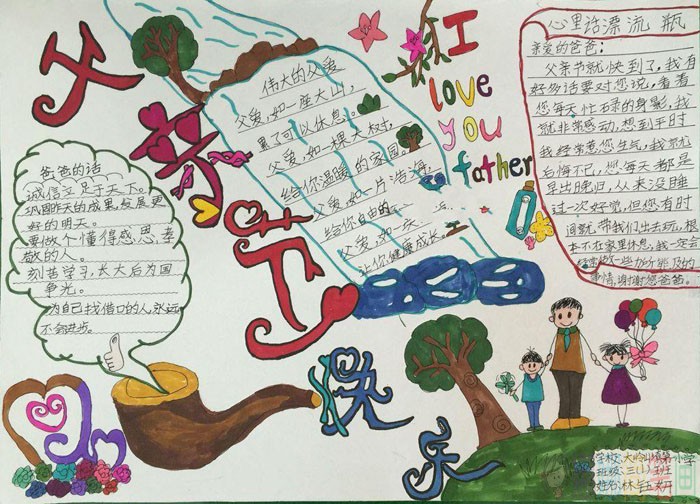 父亲节快乐
爸爸的话
诚信立足于天下。
巩固昨天的成果,发展更
好的明天。
要做个懂得感恩,孝
敬的人。
刻苦学习,长大后为国
争光。
为自己找借口的人,永远
不会进步。
伟大的父爱
父爱,如一座大山,
累了可以休息。
父爱,如一棵大树,
给你温暖的家园。
父爱,如一片浩海,
给你自由的
父爱,如一
让你健康成长。
I
love
you
father
心里话漂流瓶
亲爱的爸爸:
父亲节就快到了,我有
好多话要对您说,看看
您每天忙碌的身影,我
就非常感动,想到平时
我经常惹您生气,我就
后悔不已,您每天都是
早出晚归,从来没睡
过一次好觉,但您有时
间就带我们出去玩,根
本不在家里休息,我一定会
经常做一些力所能及的
事情,谢谢您爸爸。
学校:大岭山 小学
班级:三(1)班
姓名:林